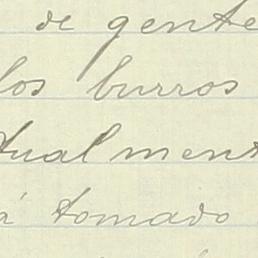 de gente
los burros
tualment
á tomado